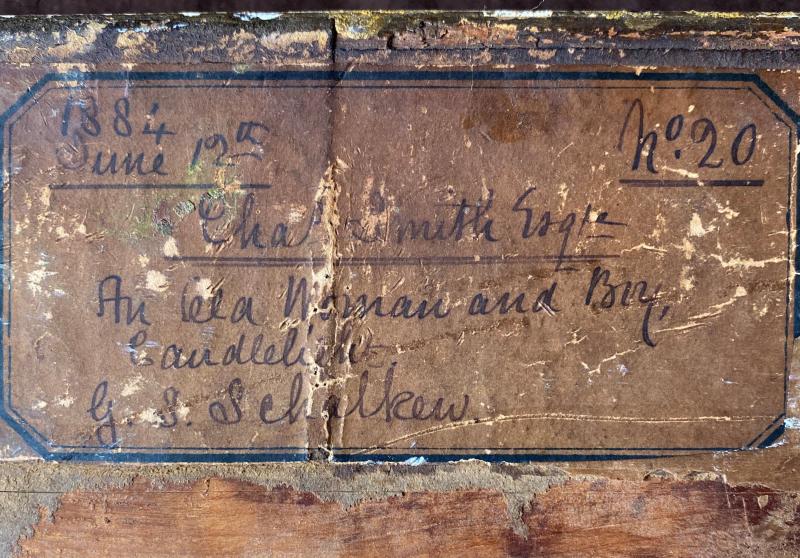 1884
June 12th
No. 20
Chas Smith Esqre
An Old Woman and Boy,
Candlelight
G. S. Schalken